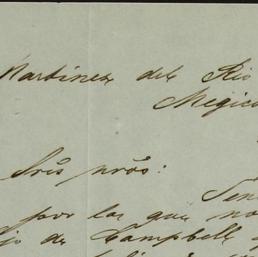 Martinez del Rio
Megico
Sres nros:
por las que no
de Campbell